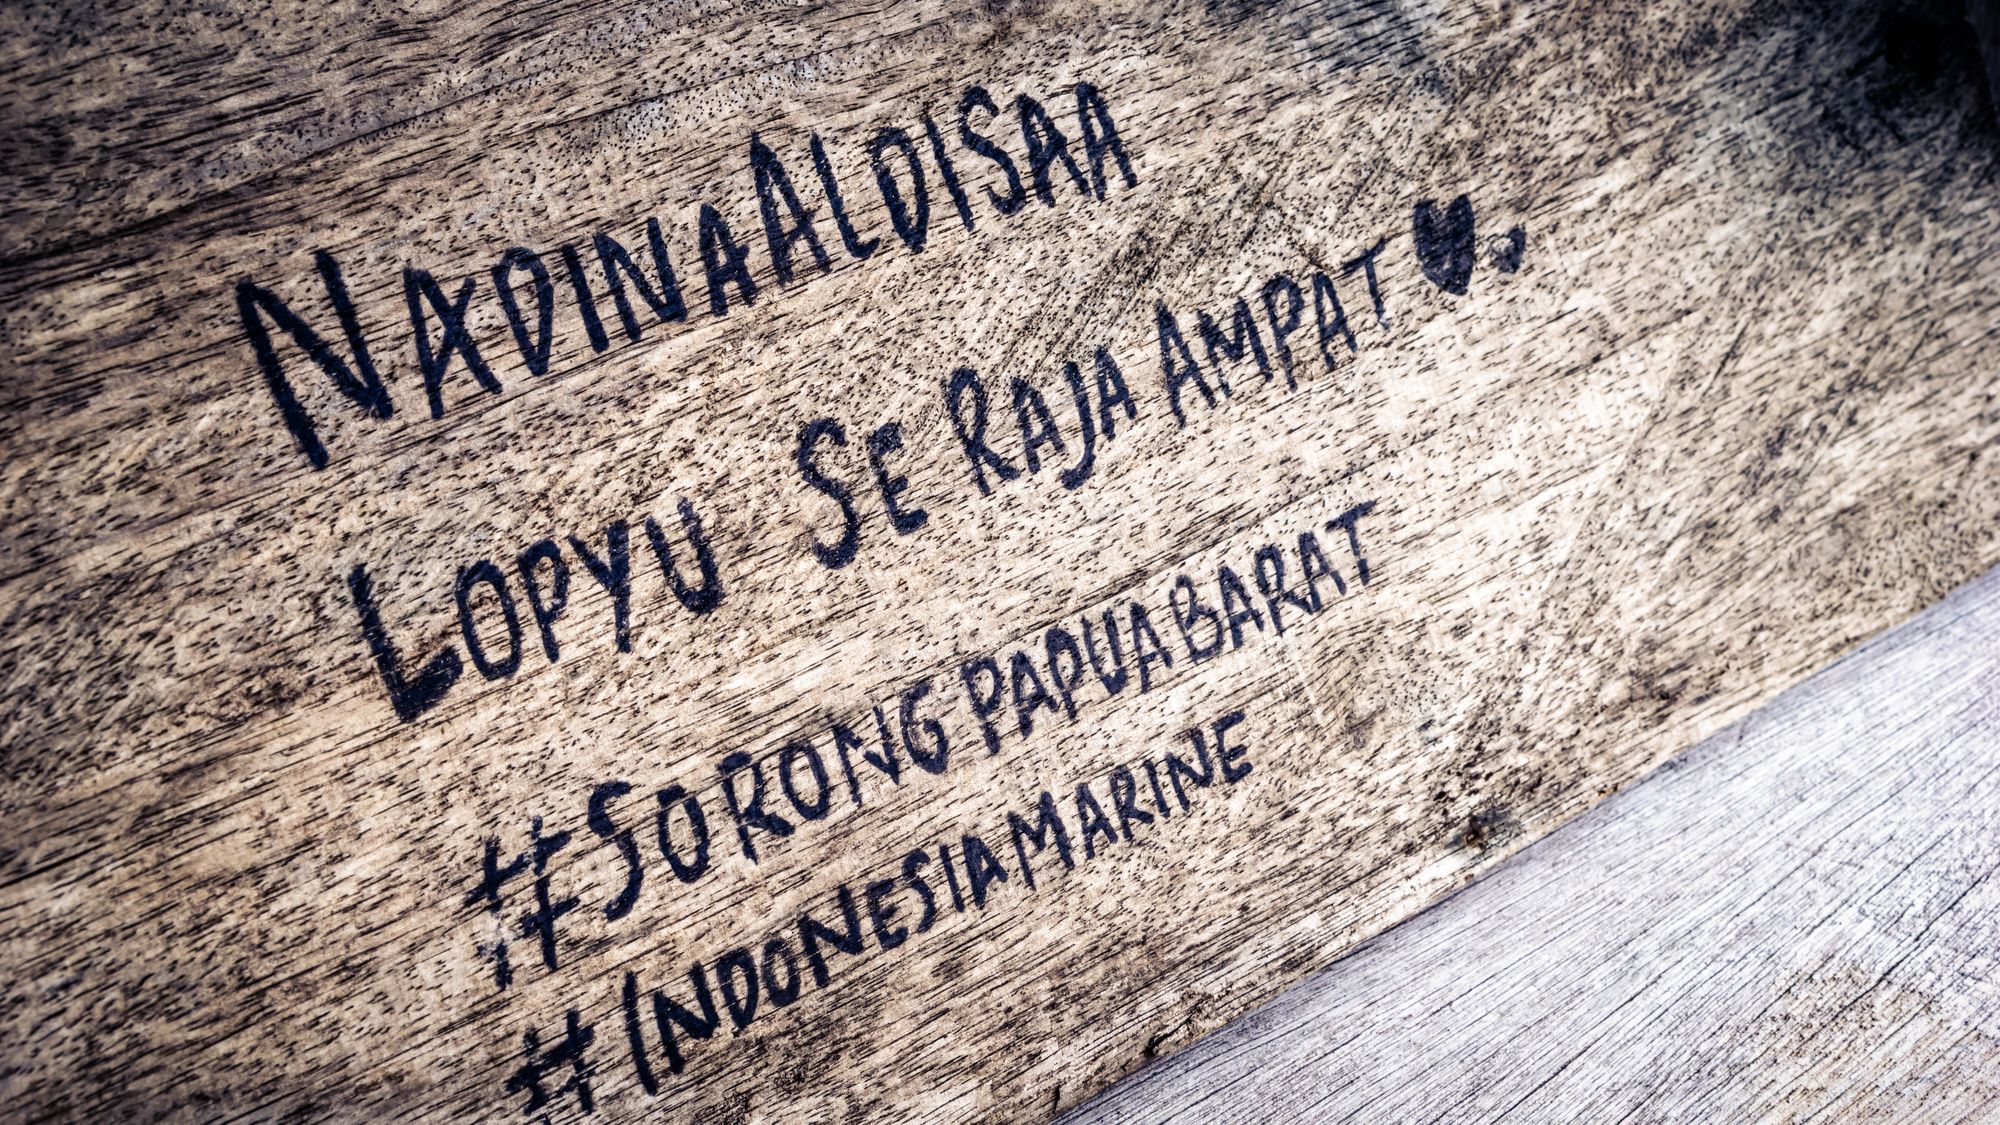 NADINAALOISAA
LOPYU SE RAJA AMPAT
#SORONG PAPUA BARAT
#INDONESIAMARINE